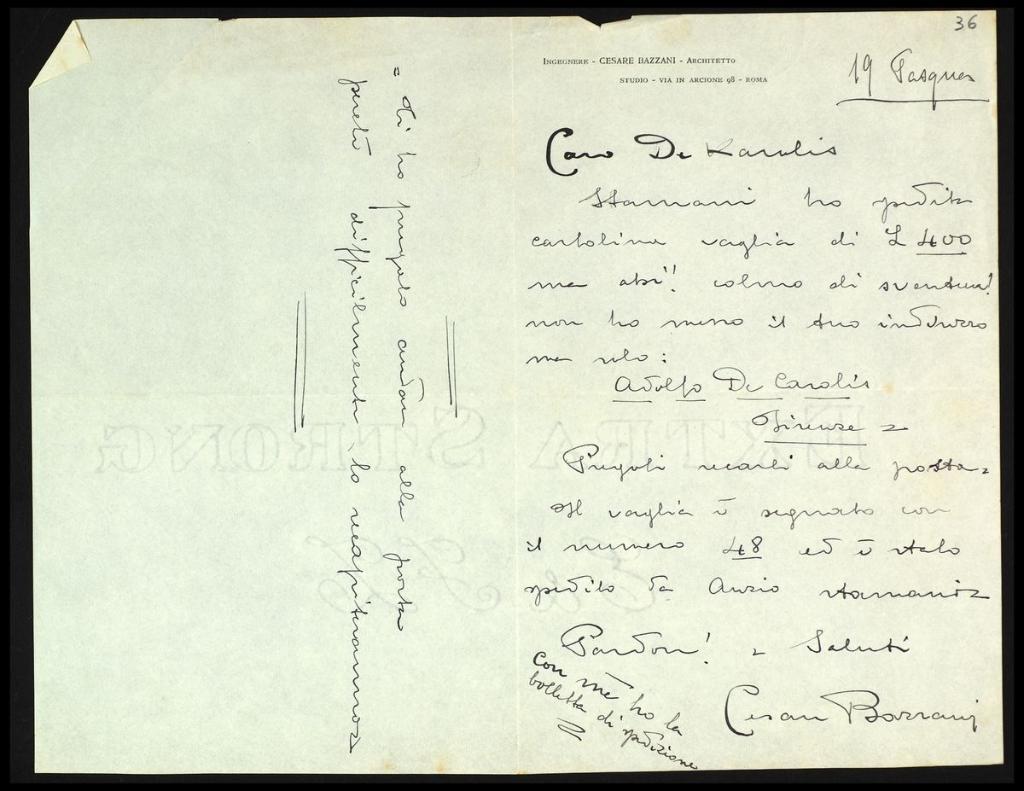 36
INGEGNERE - CESARE BAZZANI - ARCHITETTO
STUDIO - VIA IN ARCIONE 98 - ROMA
19 Pasqua
Caro De Karolis
Stamani ho spedito
cartolina vaglia di £ 400
ma ahi!! colmo di sventura!
non ho messo il tuo indirizzo
ma solo:
Adolfo De Carolis
Firenze =
Pregoti recarti alla posta =
Il vaglia è segnato con
il numero 48 ed è stato
spedito da Anzio stamani =
Pardon! = Saluti
Cesare Bazzani
con me ho la
bolletta di spedizione
= Ti ho pregato andare alla posta
perchè difficilmente lo recapiteranno =
EXTRA STRONG